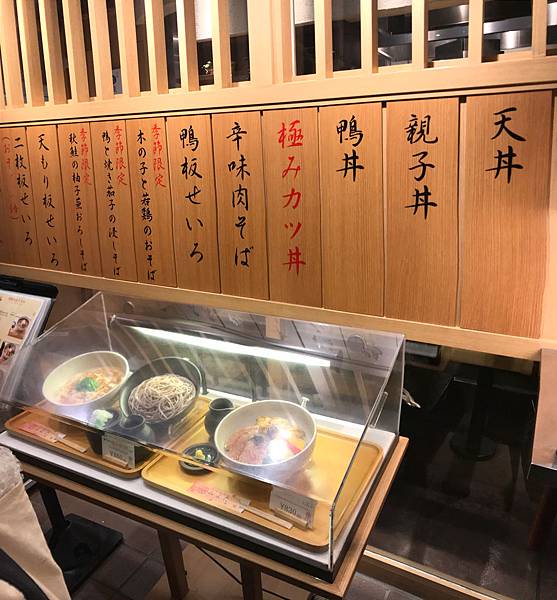 天丼
親子丼
鴨丼
極みカツ丼
辛味肉そば
鴨板せいろ
季節限定
木の子と若鶏のおそば
季節限定
鴨と焼き茄子の浸しそば
季節限定
秋鮭の柚子薫おろしそば
天もり板せいろ
二枚板せいろ